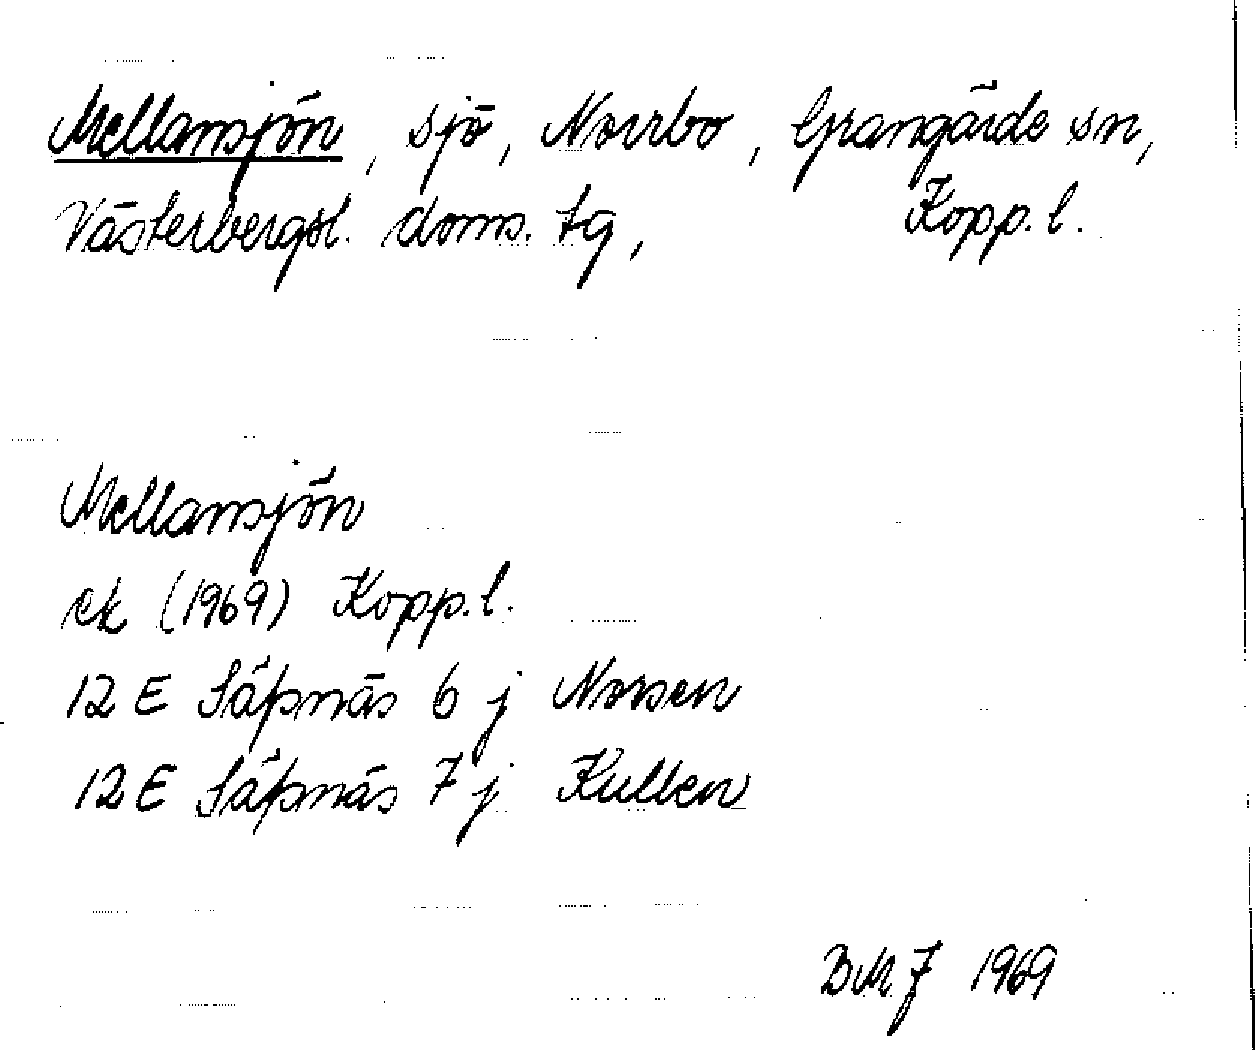 Mellansjön, sjö, Norrbo, Grangärde sn,
Västerbergsl. doms. tg, Kopp. l.
Mellansjön
ek (1969) Kopp. l.
12 E Säfsnäs 6 j Norsen
12 E Säfsnäs 7 j Kullen
BMJ 1969